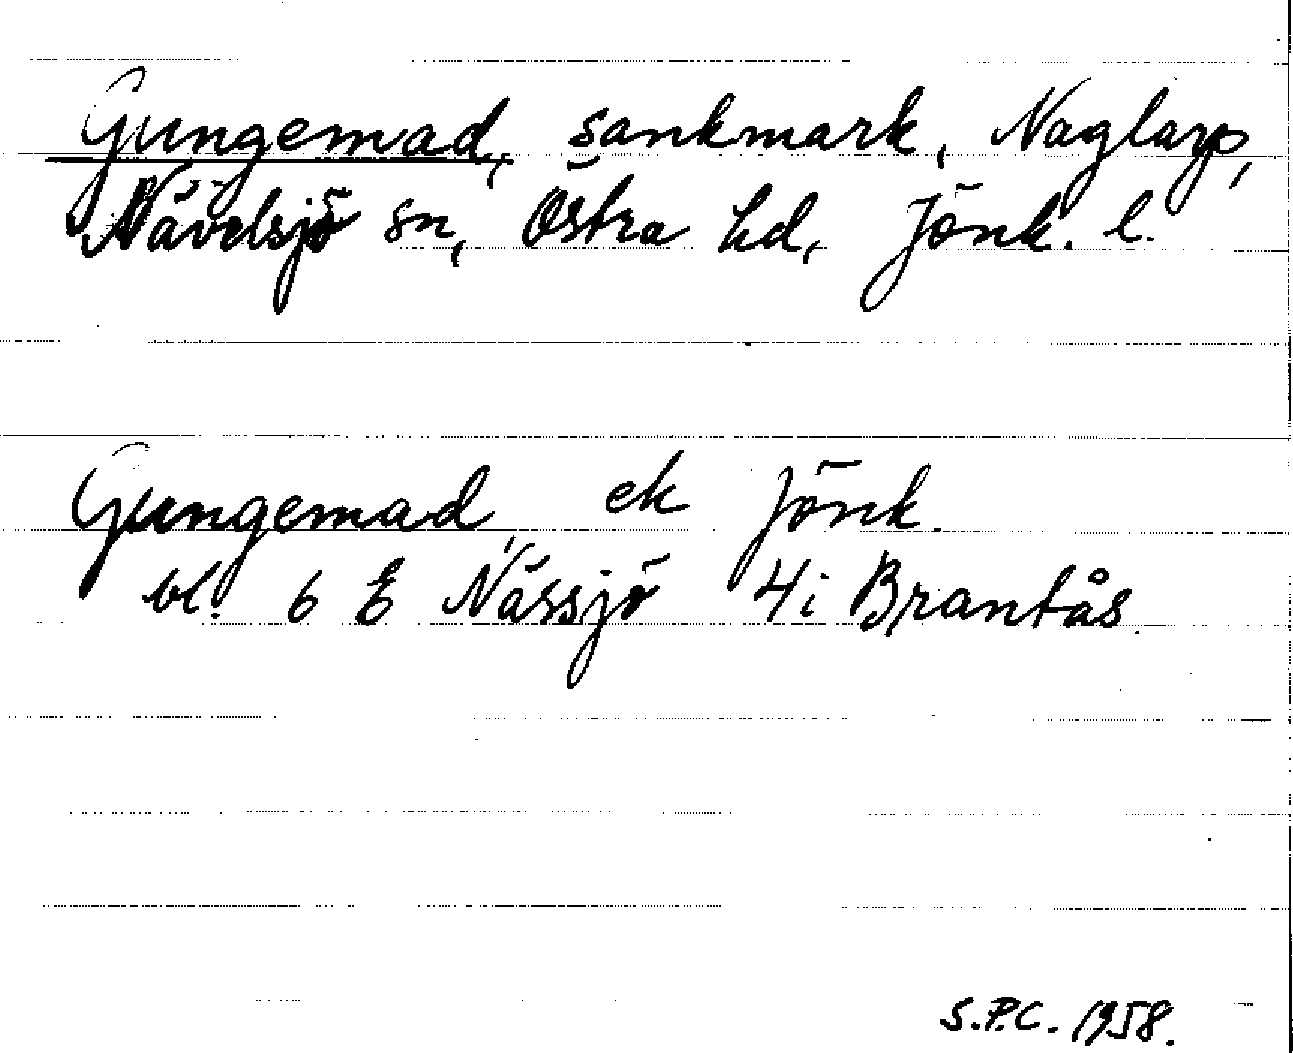 Gungemad, sankmark, Naglarp,
Nävelsjö sn, Östra hd, Jönk. l.
Gungemad, ek Jönk.
bl. 6 E Nässjö 4i Brantås
S.P.C. 1958.